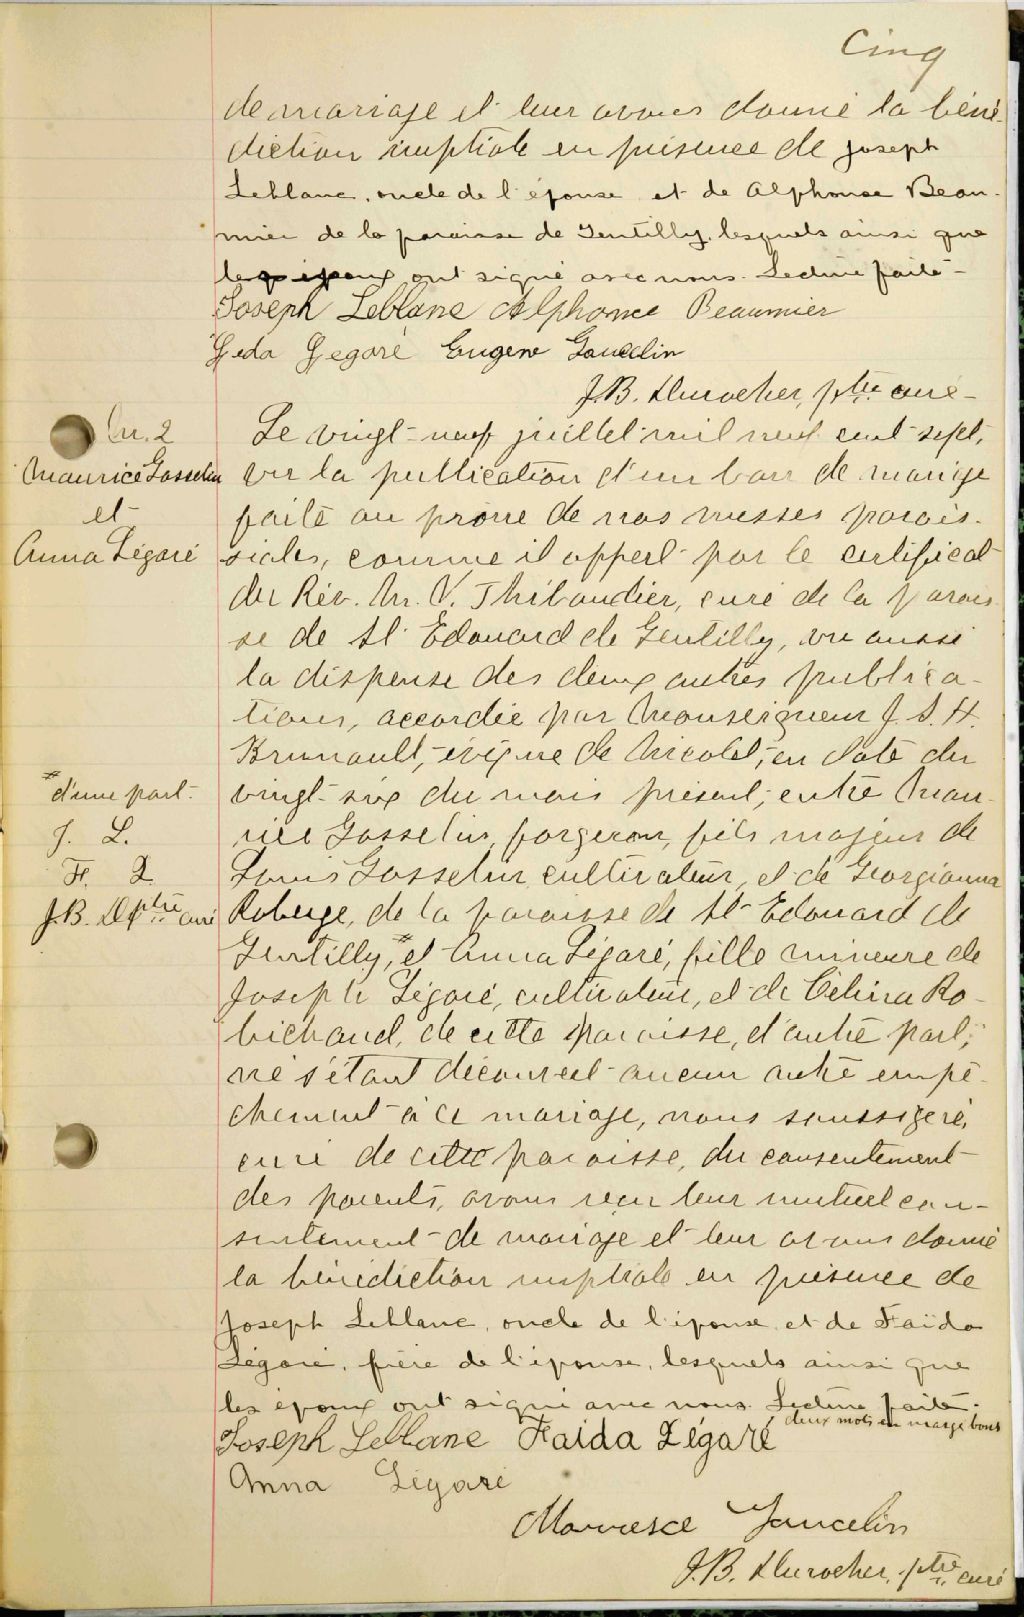 Cinq
de mariage et leur avons donné la béné-
diction nuptiale en présence de Joseph
Leblanc, oncle de l'épouse et de Alphonse Beau-
mier de la paroisse de Gentilly, lesquels ainsi que
les époux ont signé avec nous. Lecture faite-
Joseph Leblanc Alphonse Beaumier
Geda Legaré Eugene Gaucelin
J.B. Durocher, ptre curé-
M. 2
Maurice Gosselin
et
Anna Légaré
Le vingt-neuf juillet mil neuf cent sept,
vu la publication d'un ban de mariage
faite au prône de nos messes parois-
siales, comme il appert par le certificat
du Rév. M. V. Thibaudier, curé de la parois-
se de St Edouard de Gentilly, vu aussi
la dispense des deux autres publica-
tions, accordée par Monseigneur J. S. H.
Brunault, évêque de Nicolet, en date du
vingt-six du mois présent, entre Mau-
rice Gosselin, forgeron, fils majeur de
Louis Gosselin, cultivateur, et de Georgianna
Roberge, de la paroisse de St Edouard de
Gentilly,# et Anna Légaré, fille mineure de
Joseph Légaré, cultivateur, et de Célina Ro-
bichaud, de cette paroisse, d'autre part;
ne s'étant découvert aucun autre empê-
chement à ce mariage, nous soussigné,
curé de cette paroisse, du consentement
des parents, avons reçu leur mutuel con-
sentement de mariage et leur avons donné
la bénédiction nuptiale en présence de
Joseph Leblanc, oncle de l'épouse et de Faïda
Légaré, frère de l'épouse, lesquels ainsi que
les époux ont signé avec nous. Lecture faite.
deux mots en marge bons
# d'une part.
J. L.
F. L
J.B. D. ptre curé
Joseph Leblanc Faida Légaré
Anna Légaré
Gaucelin
J.B. Durocher, ptre curé